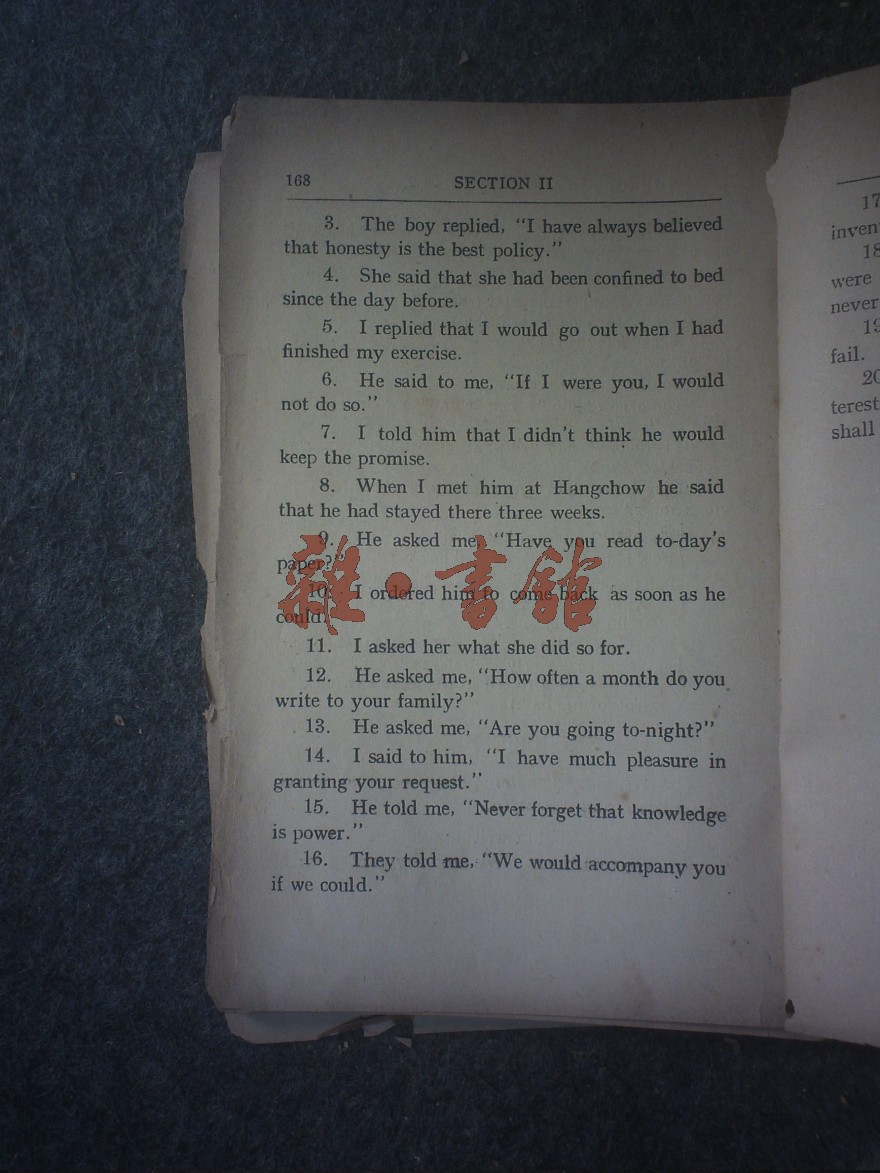 168 SECTION II
3. The boy replied, "I have always believed
that honesty is the best policy."
4. She said that she had been confined to bed
since the day before.
5. I replied that I would go out when I had
finished my exercise.
6. He said to me, "If I were you, I would
not do so."
7. I told him that I didn't think he would
keep the promise.
8. When I met him at Hangchow he said
that he had stayed there three weeks.
9. He asked me, "Have you read to-day's
paper?"
10. I ordered him to come back as soon as he
could.
11. I asked her what she did so for.
12. He asked me, "How often a month do you
write to your family?"
13. He asked me, "Are you going to-night?"
14. I said to him, "I have much pleasure in
granting your request."
15. He told me, "Never forget that knowledge
is power."
16. They told me, "We would accompany you
if we could."
雜·書館
17
inven
18
were
never
19
fail.
20
terest
shall